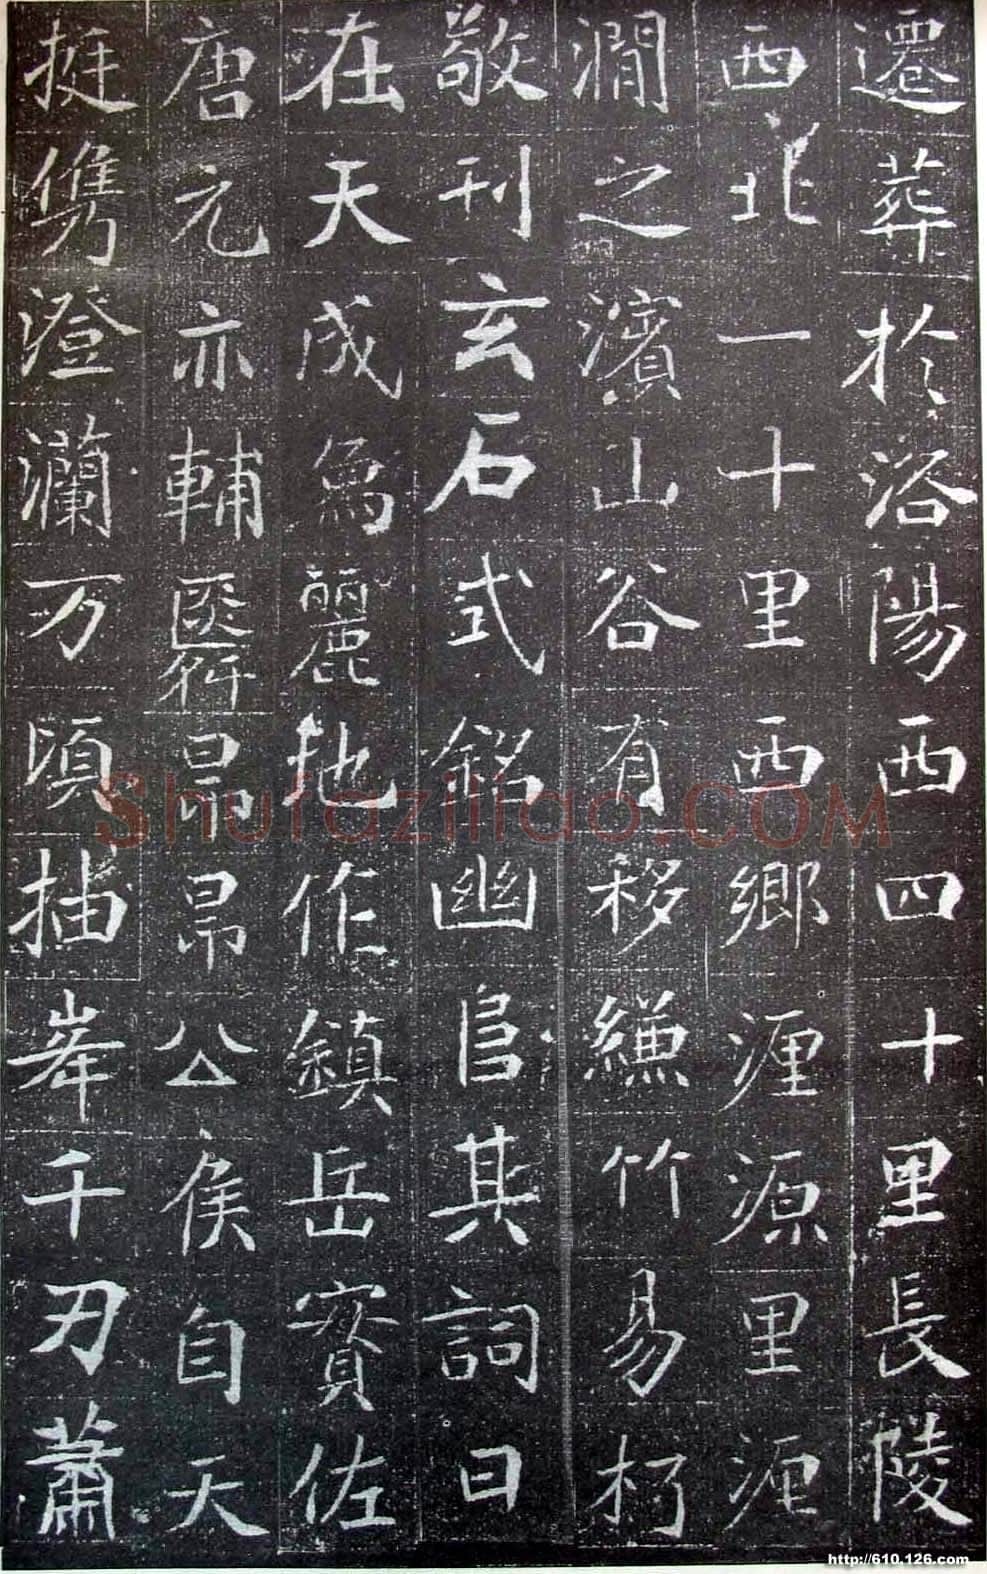 遷葬於洛陽西四十里長陵
西北一十里西鄉瀍源里瀍
澗之濱山谷有移縑竹易朽
敬刊玄石式銘幽扃其詞曰
在天成爲麗地作鎮岳賓佐
唐元亦輔昂昂公侯自天
挺儁澄瀾万頃抽峯千刃蕭
Shufaziliao.COM
http://610.126.com